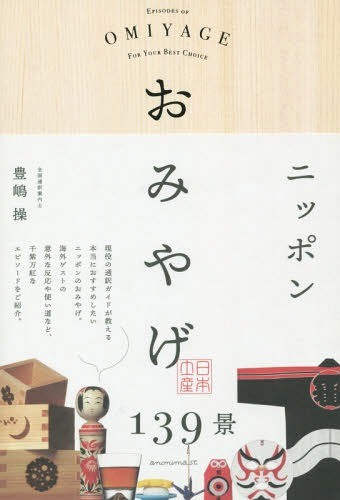 EPISODES OF
OMIYAGE
FOR YOUR BEST CHOICE
ニッポン
おみやげ
139景
日本
土産
全国通訳案内士
豊嶋 操
現役の通訳ガイドが教える
本当におすすめしたい
ニッポンのおみやげ。
海外ゲストの
意外な反応や使い道など、
千紫万紅な
エピソードをご紹介。
anonima st.